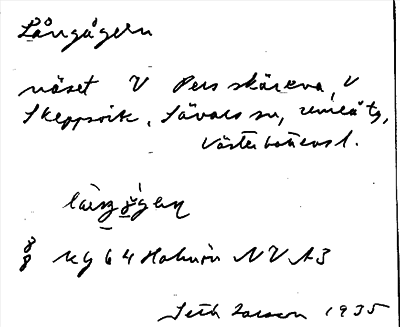 Långågern
näset V Pers skäreva, V
Skeppsvik, Sävars sn, Umeå tg,
Västerbottens l.
kg 64 Holmön NV A3
Seth Larsson 1935